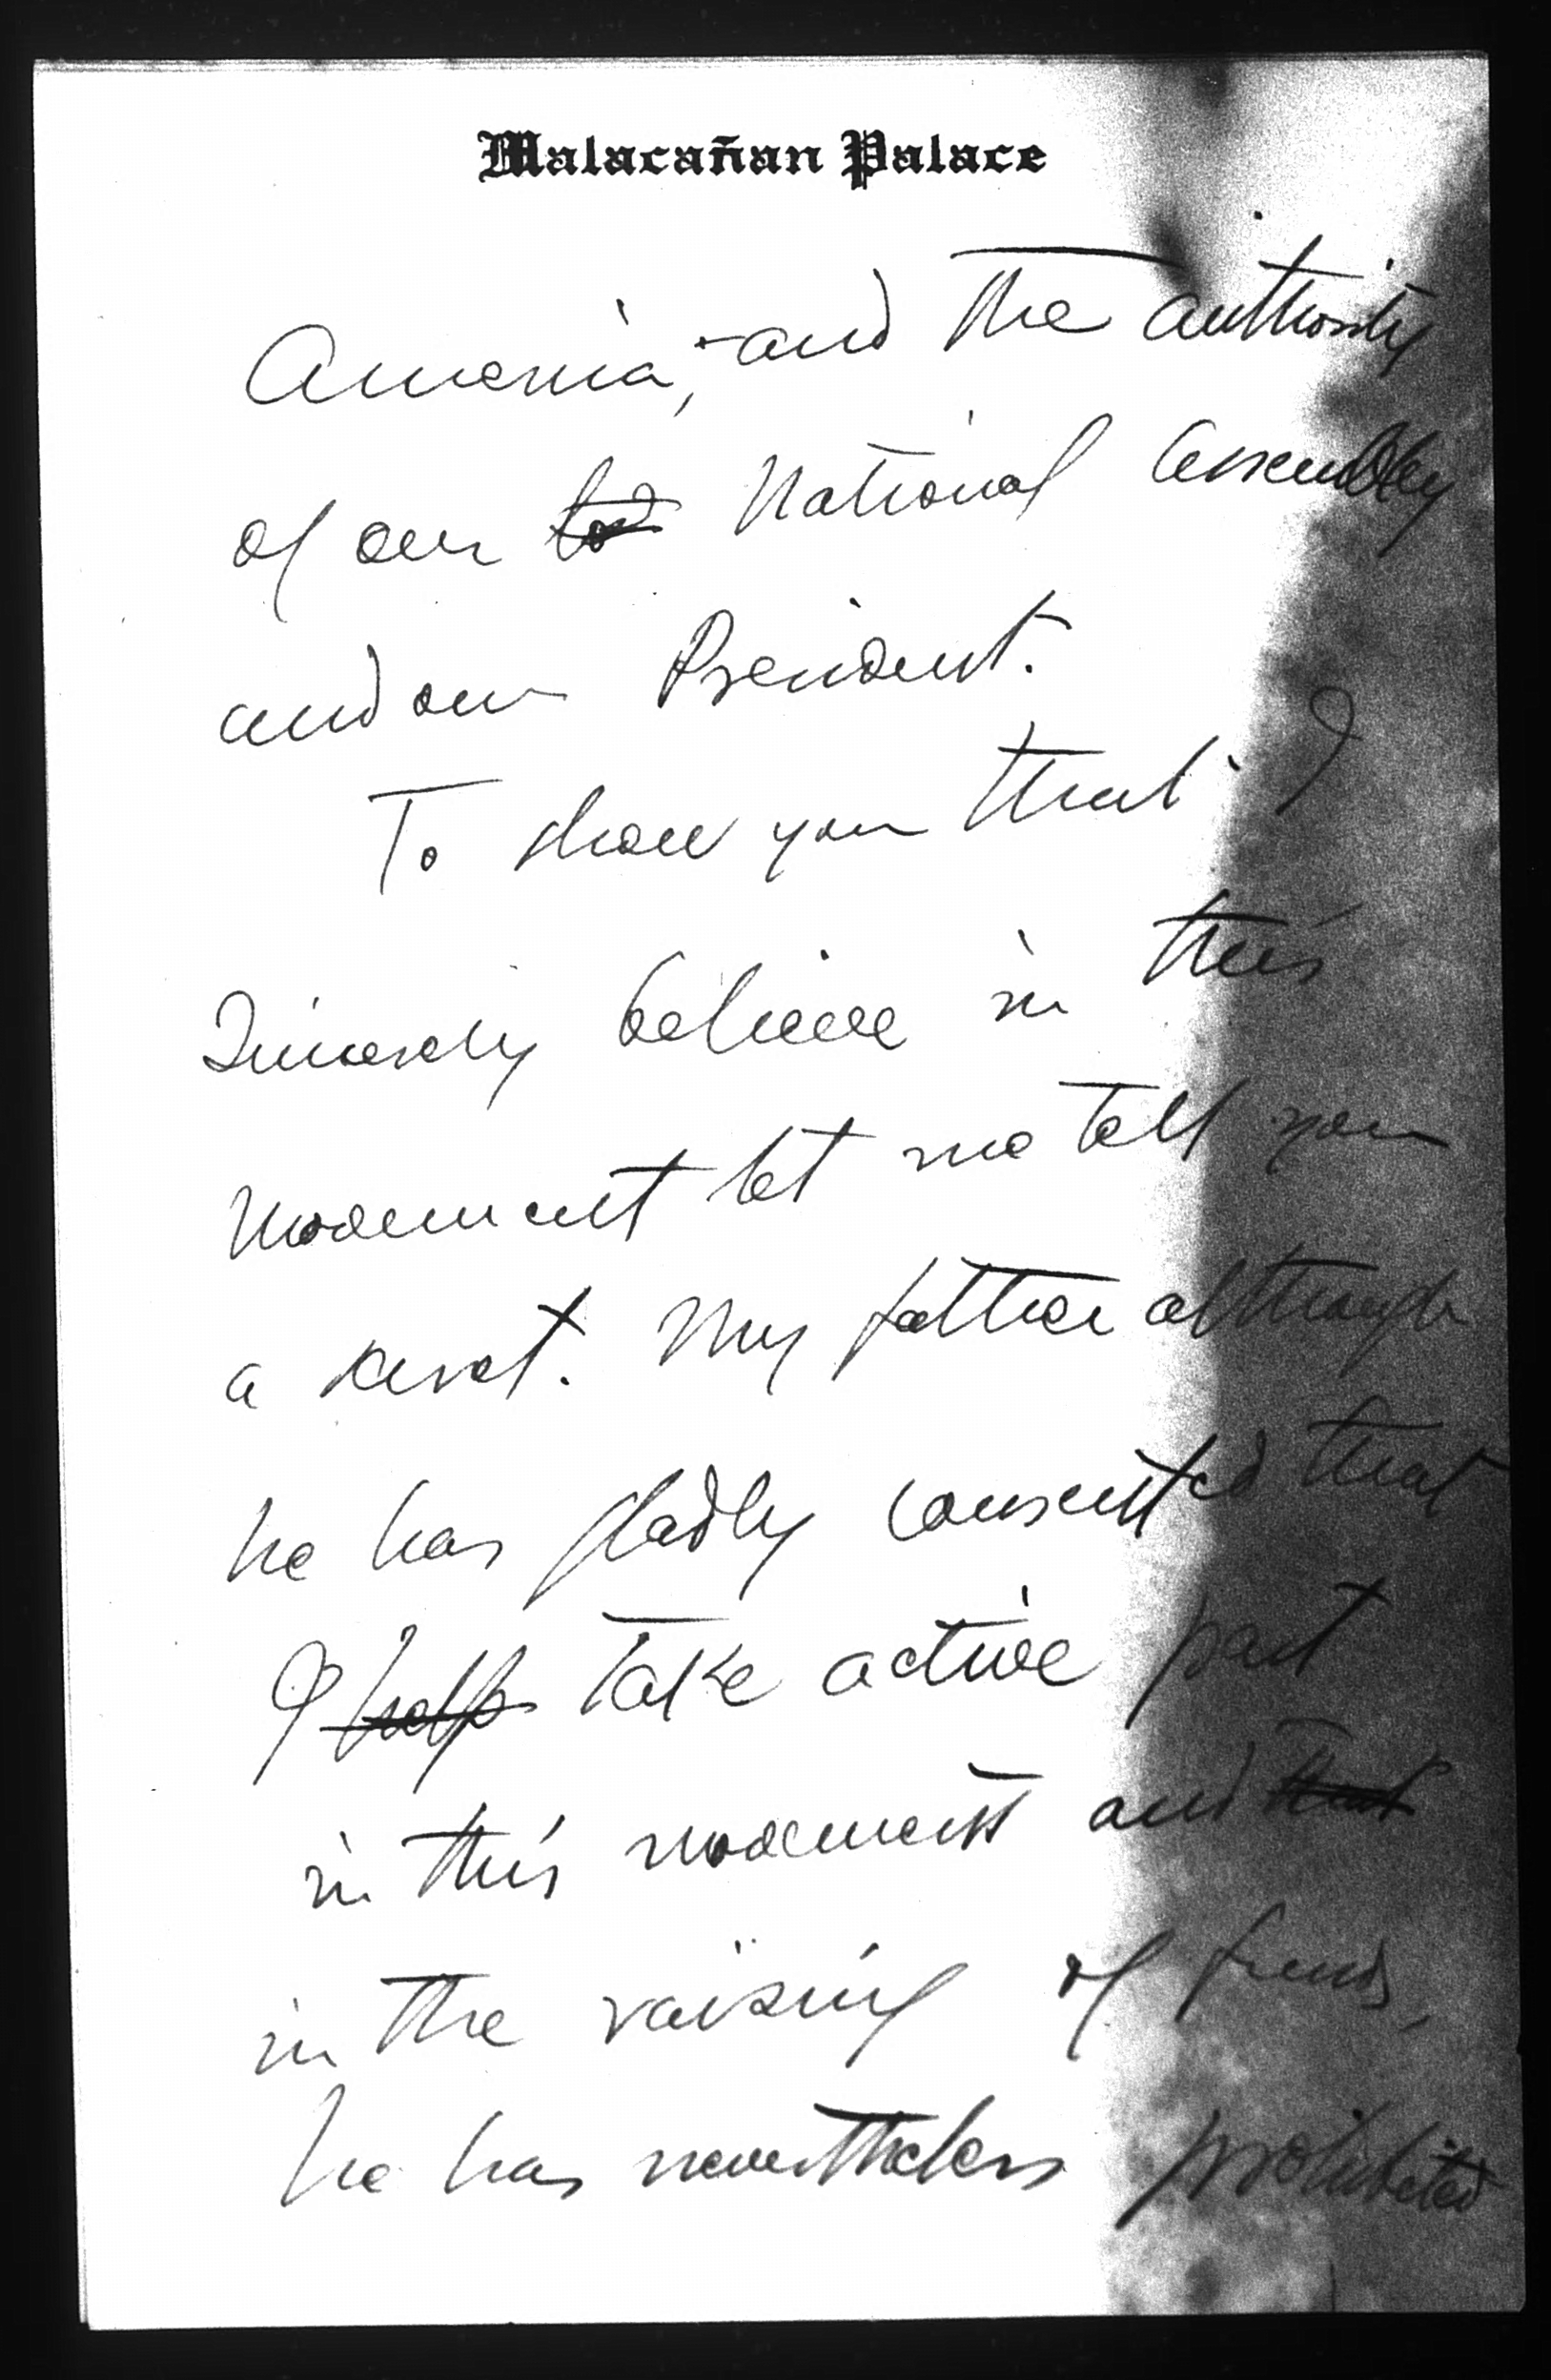 Malacañan Palace
America, and the authority
of our National Assembly
and our President.
To show you that I
Sincerely believe in this
movement let me tell you
a secret. My father although
he has gladly consented that
I help take active part
in this movement and that
in the raising of funds,
he has nevertheless prohibited